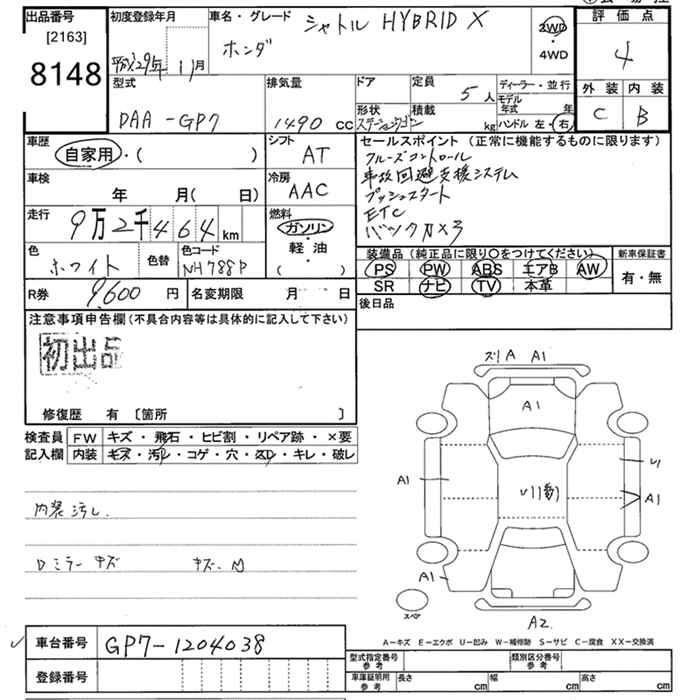 出品番号
[2163]
8148
初度登録年月
平成29年 11月
車名・グレード
シャトル HYBRID X
ホンダ
2WD
4WD
評価点
4
外装 内装
C B
型式
DAA-GP7
排気量
1490 cc
ドア
形状
ステーションワゴン
定員
5人
積載
kg
ディーラー・並行
モデル年式 年
ハンドル 左・右
車歴
自家用・( )
シフト
AT
車検
年 月( 日)
冷房
AAC
走行
9万2千464 km
燃料
ガソリン・軽・油
( )
色
ホワイト
色替
色コード
NH788P
R券
9600 円
名変期限 月 日
セールスポイント (正常に機能するものに限ります)
クルーズコントロール
事故回避支援システム
プッシュスタート
ETC
バックカメラ
装備品(純正品に限り○をつけてください)
PS PW ABS エアB AW
SR ナビ TV 本革
新車保証書
有・無
後日品
注意事項申告欄(不具合内容等は具体的に記入して下さい)
初出品
修復歴 有 〔箇所 〕
検査員記入欄
FW キズ・飛石・ヒビ割・リペア跡・×要
内装 キズ・汚レ・コゲ・穴・スレ・キレ・破レ
内装汚レ
Dミラーキズ キズ.M
ズリA A1
A1
A1
U1
A1
A1
A2
スペア
A-キズ E-エクボ U-凹み W-補修跡 S-サビ C-腐食 XX-交換済
車台番号 GP7-1204038
登録番号
型式指定番号 参考
類別区分番号 参考
車庫証明用 参考
長さ cm 幅 cm 高さ cm